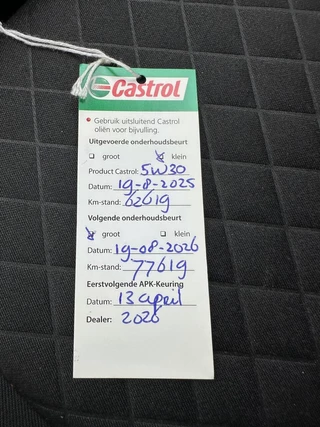 Castrol
Gebruik uitsluitend Castrol
oliën voor bijvulling.
Uitgevoerde onderhoudsbeurt
groot klein
Product Castrol: 5W30
Datum: 19-8-2025
Km-stand: 62619
Volgende onderhoudsbeurt
groot klein
Datum: 19-08-2026
Km-stand: 77619
Eerstvolgende APK-Keuring
Datum: 13 april
Dealer: 2026